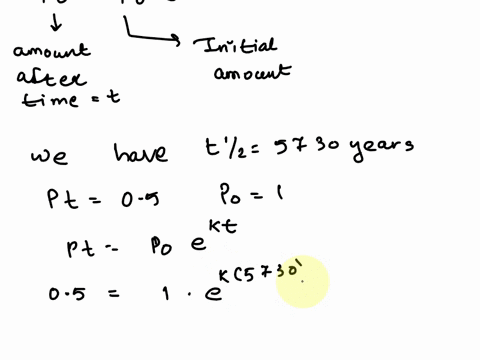 amount
after
time = t
Initial
amount
we have t 1/2 = 5730 years
Pt = 0.5 P0 = 1
Pt = P0 e^kt
0.5 = 1 . e^k(5730)